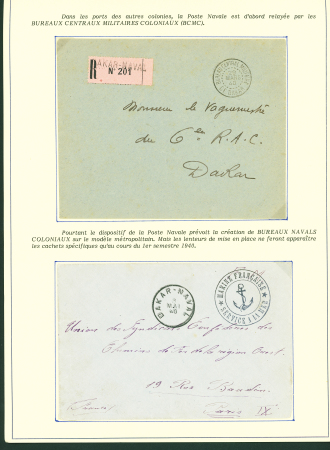 Dans les ports des autres colonies, la Poste Navale est d'abord relayée par les
BUREAUX CENTRAUX MILITAIRES COLONIAUX (BCMC).
DAKAR-NAVAL
N° 201
Monsieur le Vaguemestre
du 6e R.A.C.
Dakar
Pourtant le dispositif de la Poste Navale prévoit la création de BUREAUX NAVALS
COLONIAUX sur le modèle métropolitain. Mais les lenteurs de mise en place ne feront apparaître
les cachets spécifiques qu'au cours du 1er semestre 1940.
DAKAR-NAVAL
MAI
40
MARINE FRANÇAISE
SERVICE À LA MER
Union des Syndicats Confédérés des
Chemins de fer de la région Ouest.
19 Rue Baudin
Paris IX
(France)